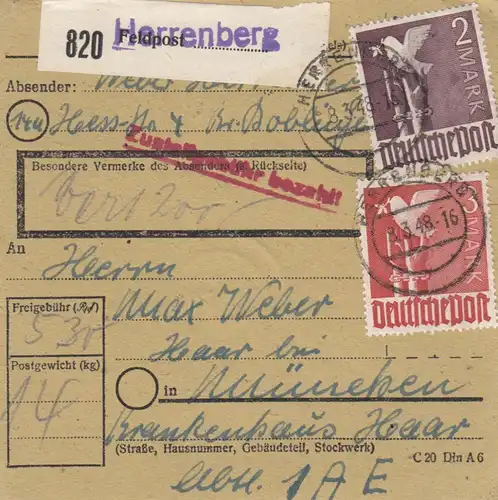 820
Herrenberg
Feldpost
Absender: Weber
Hess-Str. 4 Kr. Böblingen
Zustellgebühr bezahlt
Besondere Vermerke des Absenders (s. Rückseite)
Wert 200
An
Herrn
Max Weber
Haar bei
in München
Krankenhaus Haar
(Straße, Hausnummer, Gebäudeteil, Stockwerk)
Abt. 1 A E
C 20 Din A 6
Freigebühr
5 30
Postgewicht (kg)
14
2 MARK
Deutsche Post
HERRENBERG
3.3.48-16
3 MARK
Deutsche Post
HERRENBERG
3.3.48-16